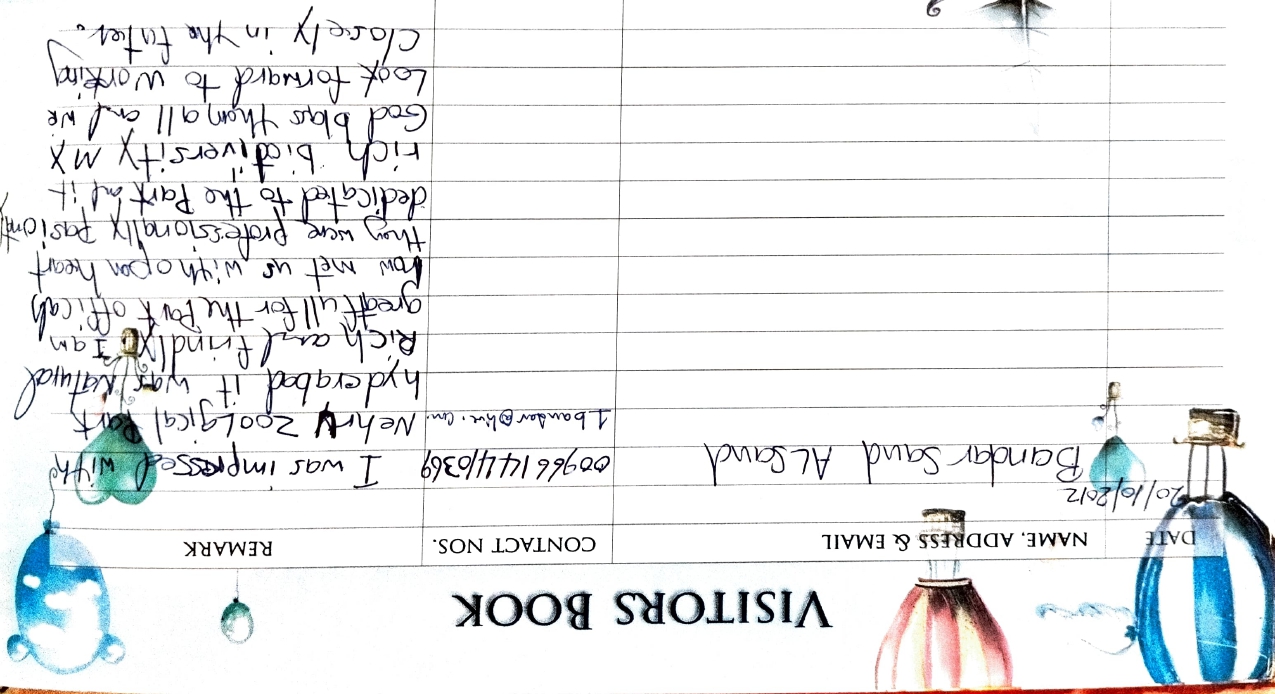 VISITORS BOOK
DATE NAME, ADDRESS & EMAIL CONTACT NOS. REMARK
20/10/2012
Bandar Saud ALSaud 0096614440369 I was impressed with
1bandar@live.com. Nehru Zoological Park
hyderabad it was Natural
Rich and frindly I am
greatfull for the Park officals
how met us with open heart
they were professionally pasionat
dedicated to the Park and it
rich bidiversity MX
God blas tham all and we
Look forward to working
Closely in the futer.